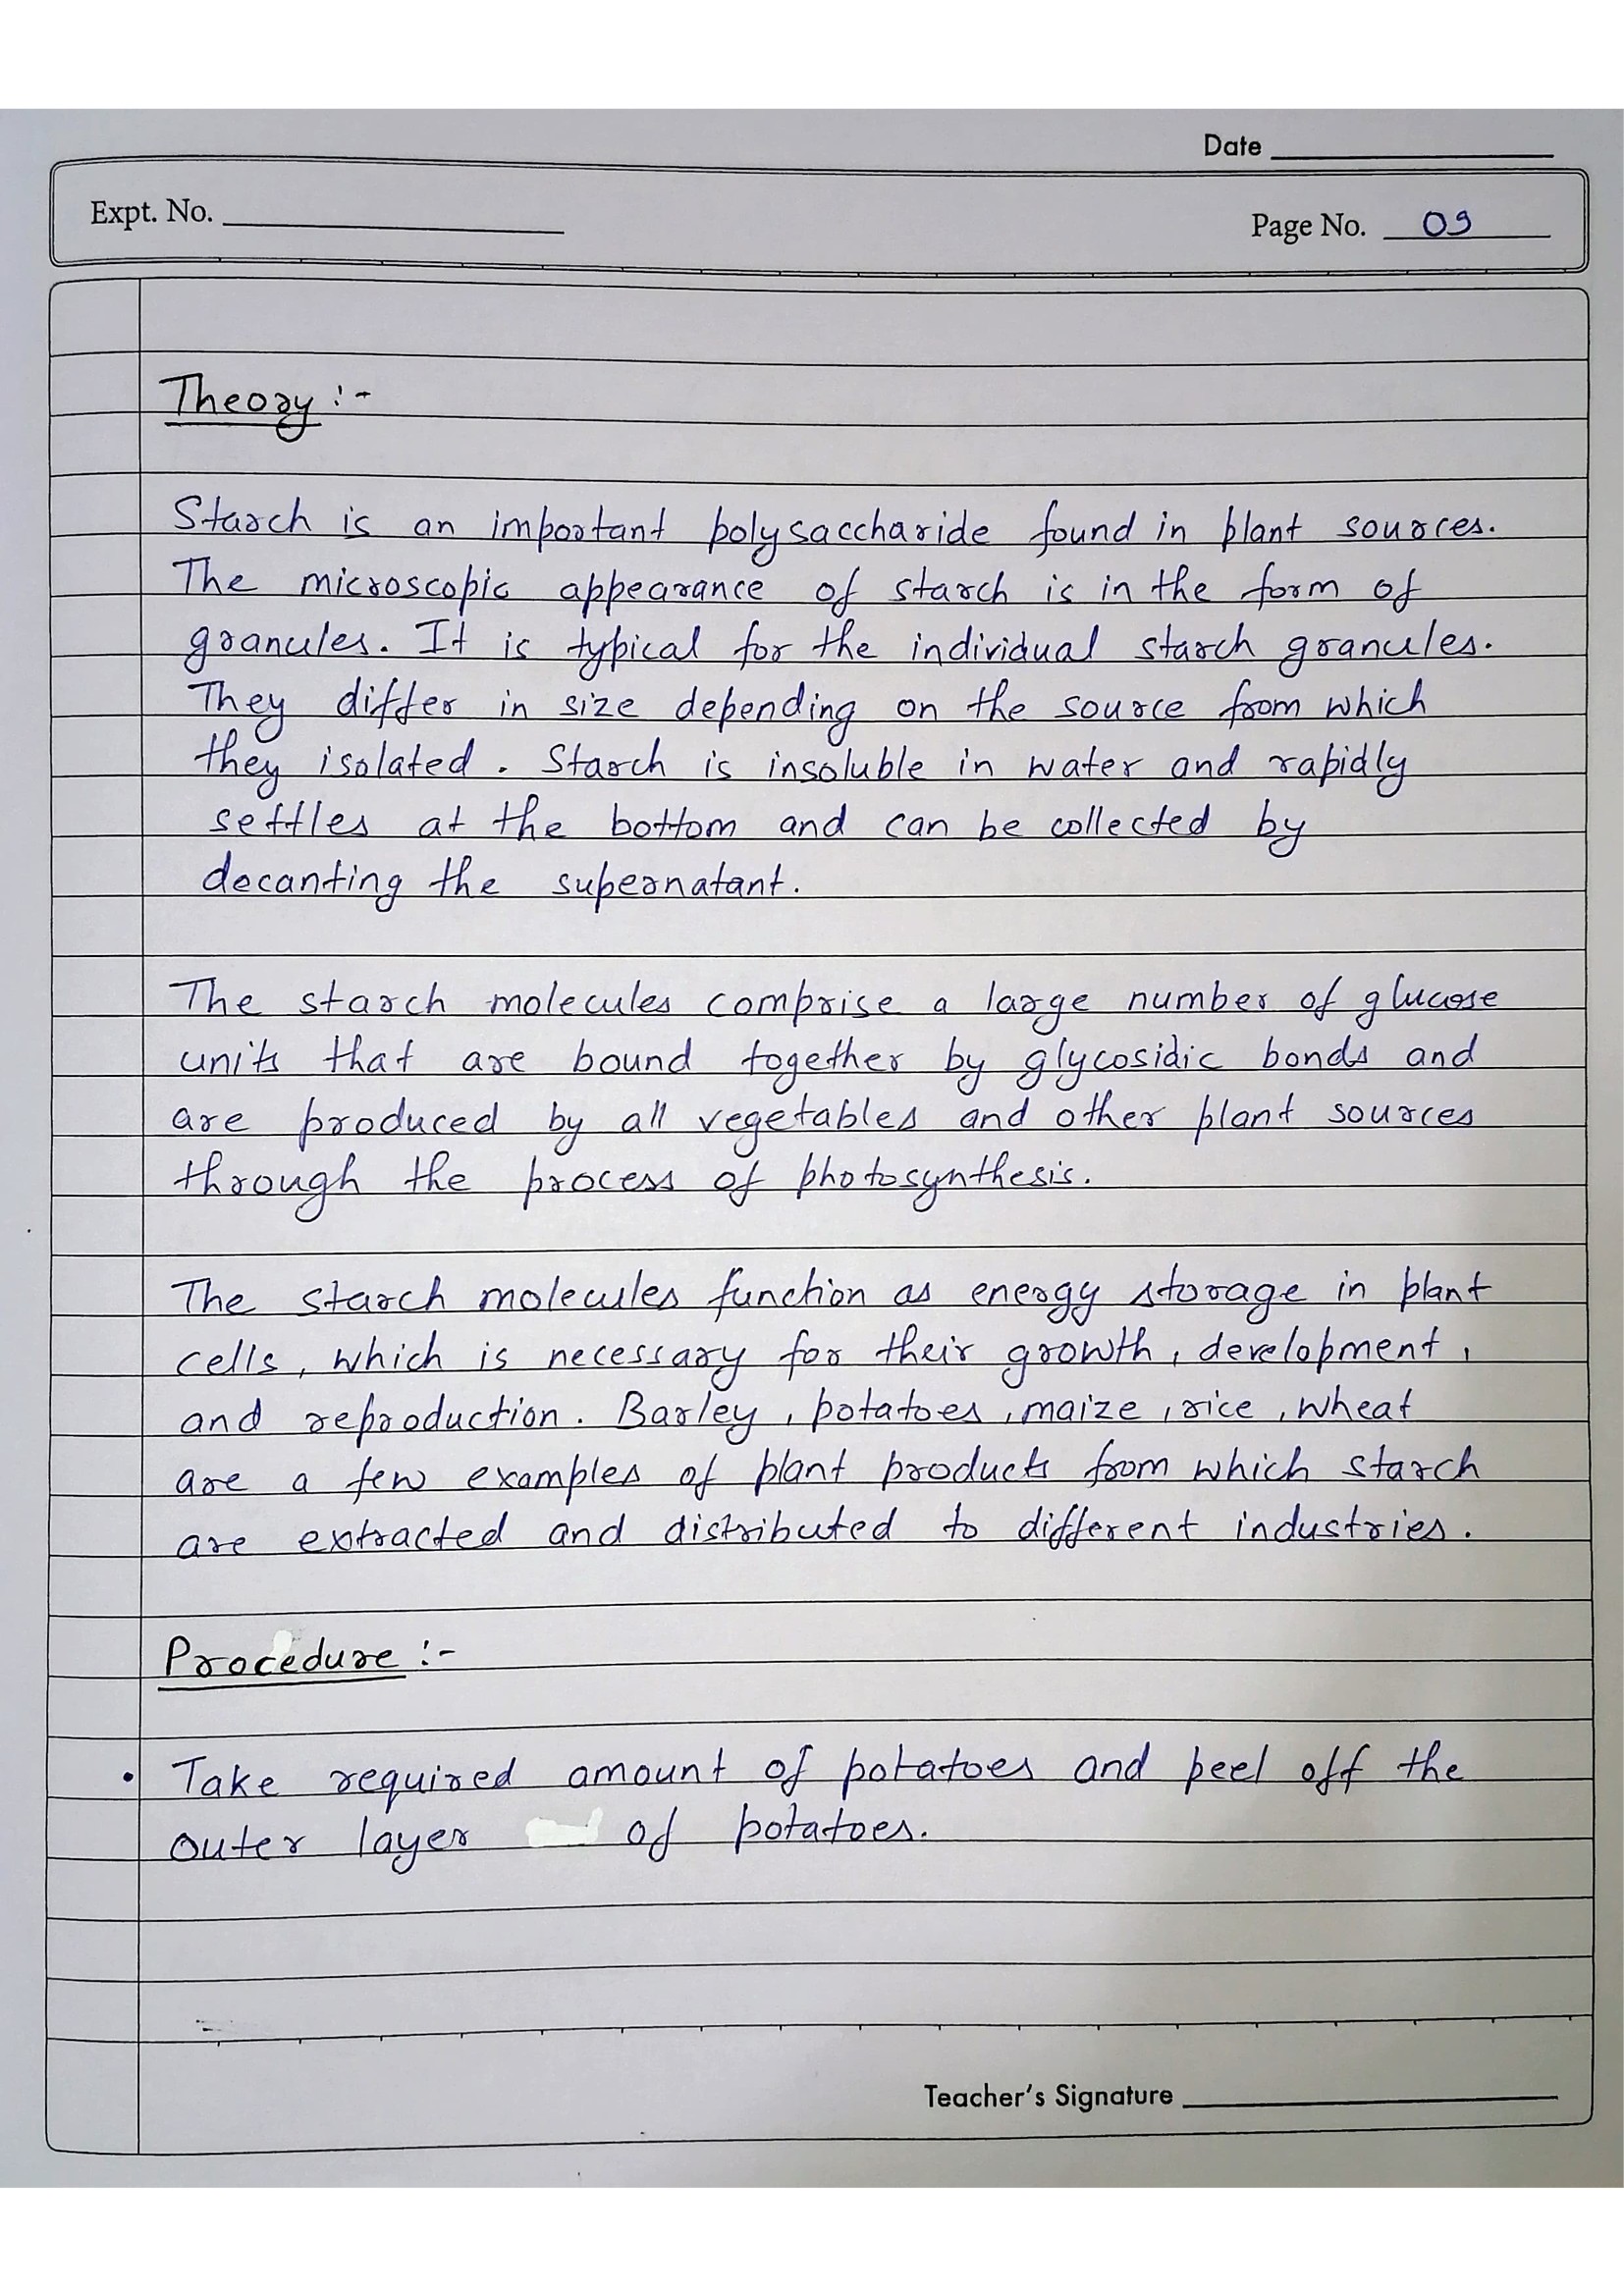 Date
Expt. No.
Page No. 09
Theory :-
Starch is an important polysaccharide found in plant sources.
The microscopic appearance of starch is in the form of
granules. It is typical for the individual starch granules.
They differ in size depending on the source from which
they isolated. Starch is insoluble in water and rapidly
settles at the bottom and can be collected by
decanting the supernatant.
The starch molecules comprise a large number of glucose
units that are bound together by glycosidic bonds and
are produced by all vegetables and other plant sources
through the process of photosynthesis.
The starch molecules function as energy storage in plant
cells, which is necessary for their growth, development,
and reproduction. Barley, potatoes, maize, rice, wheat
are a few examples of plant products from which starch
are extracted and distributed to different industries.
Procedure :-
• Take required amount of potatoes and peel off the
outer layer of potatoes.
Teacher's Signature